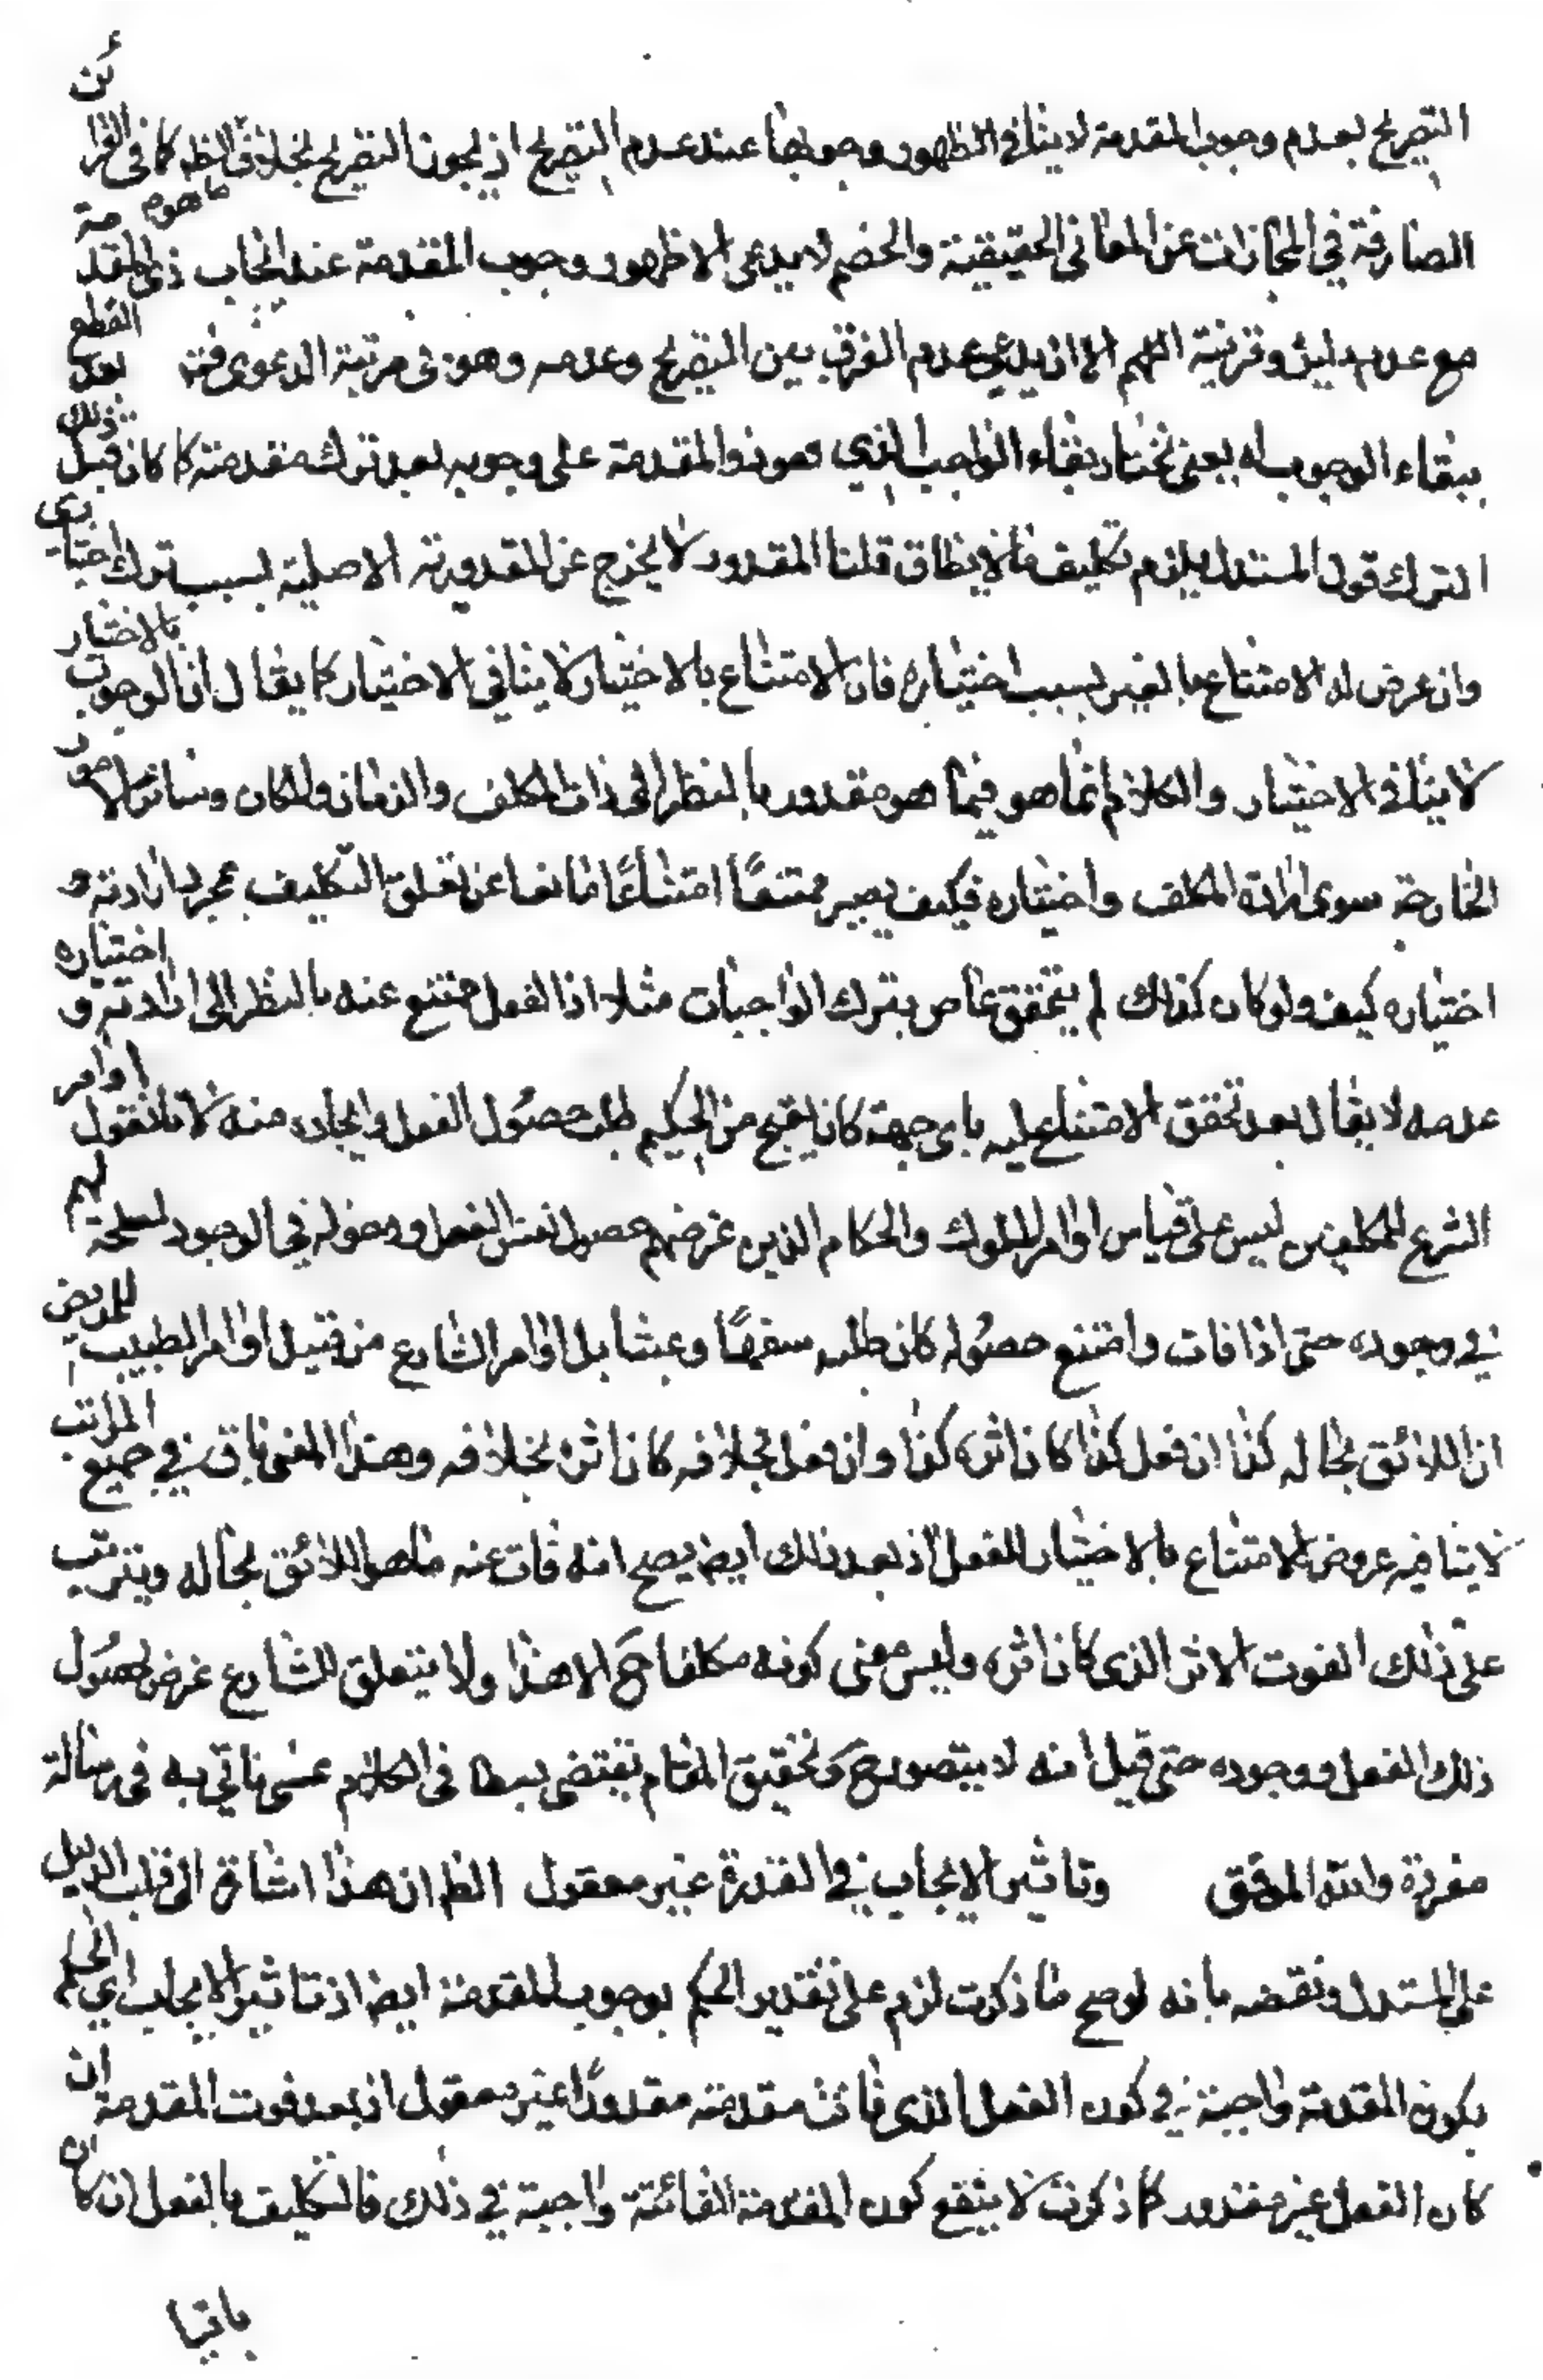 التصريح بعدم وجوب المقدمة لا ينافي الظهور وجوبها عند عدم التصريح اذ يجوز التصريح بخلاف الظ كما في القرائن
الصارفة في المجازات عن المعاني الحقيقية والخصم لا يدعى الا ظهور وجوب المقدمة عند ايجاب ذى المقدمة ما هو
مع عدم دليل وقرينة اللهم الا ان يدعى عدم الفرق بين التصريح وعدمه وهو في مرتبة الدعوى فته بعد القطع
ببقاء الوجوب اه يعنى نختار بقاء الواجب الذي هو ذو المقدمة على وجوبه بعد ترك مقدمته كما كان قبل ذلك
الترك قول المستدل يلزم تكليف ما لا يطاق قلنا المقدور لا يخرج عن المقدورية الاصلية بسبب ترك اختيارى
وان عرض له الامتناع بالغير بسبب اختياره فان الامتناع بالاختيار لا ينافي الاختيار كما يقال ان الوجوب بالاختيار
لا ينافي الاختيار والكلام انما هو فيما هو مقدور بالنظر الى ذات المكلف والزمان والمكان وسائر الامور
الخارجة سوى ارادة المكلف واختياره فكيف يصير ممتنعًا امتناعًا مانعا عن تعلق التكليف بمجرد ارادته و
اختياره كيف ولو كان كذلك لم يتحقق عاص بترك الواجبات مثلا اذ الفعل ممتنع عنه بالنظر الى ارادته و اختياره
عدمه لا يقال بعد تحقق الامتناع عليه باى جهة كان يقبح من الحكيم طلب حصول الفعل وايجاده منه لانا نقول اوامر
الشرع للمكلفين ليس على قياس اوامر الملوك والحكام الذين غرضهم حصول نفس الفعل ودخوله في الوجود لمصلحة لهم
في وجوده حتى اذا فات وامتنع حصوله كان طلبه سفهًا وعبثا بل اوامر الشارع من قبيل اوامر الطبيب للمريض
ان اللائق بحاله كذا ان فعل كذا كان اثره كذا وان فعل بخلافه كان اثره بخلافه وهذا المعنى باق في جميع المراتب
لا ينافيه عروض الامتناع بالاختيار للفعل اذ بعد ذلك ايض يصح انه فات عنه ما هو اللائق بحاله ويترتب
على ذلك الفوت الاثر الذى كان اثره وليس معنى كونه مكلفا ح الا هذا ولا يتعلق للشارع غرض بحصول
ذلك الفعل ووجوده حتى قيل انه لا يتصور ح وتحقيق المقام يقتضى بسطا في الكلام عسى ناتي به في رسالة
مفردة والله الموفق وتاثير الايجاب في القدرة غير معقول الظ ان هذا اشارة الى قلب الدليل
على المستدل ونقضه بانه لو صح ما ذكرت لزم على تقدير الحكم بوجوب المقدمة ايض اذ تاثير الايجاب اي الحكم
بكون المقدمة واجبة في كون الفعل الذى فاتت مقدمته مقدورًا غير معقول اذ بعد فوت المقدمة ان
كان الفعل غير مقدور كما ذكرت لا ينفع كون المقدمة الفائتة واجبة في ذلك فالتكليف بالفعل ان كان
باقيا